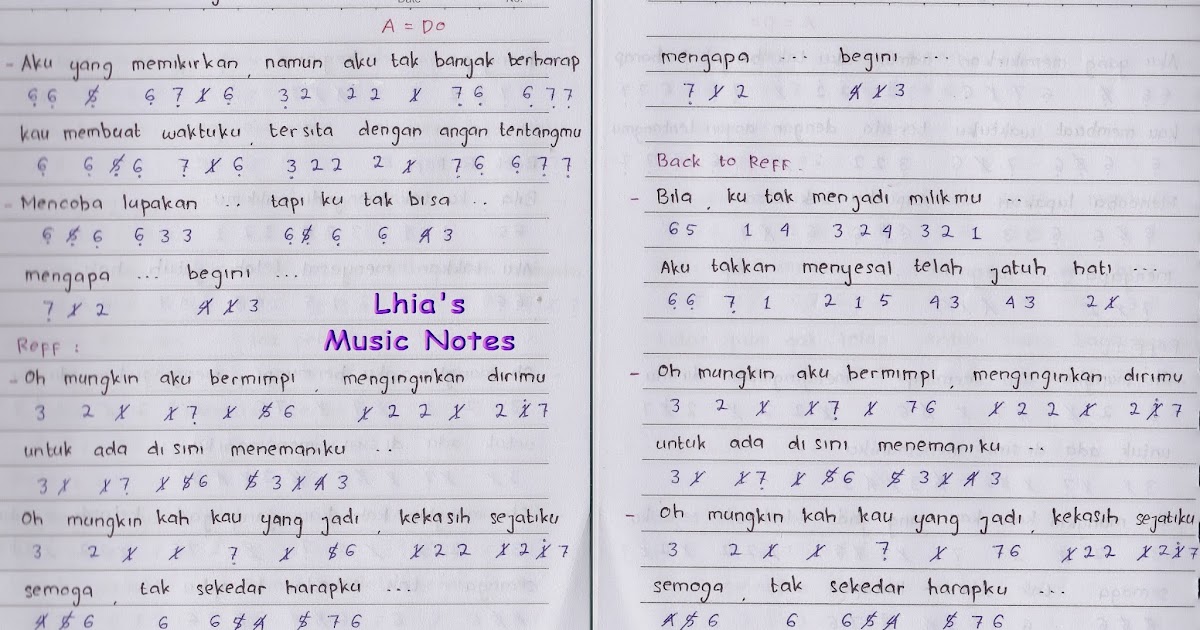 A = Do
- Aku yang memikirkan, namun aku tak banyak berharap
6̣ 6̣ 5̸̣ 6̣ 7̣ 1̸ 6̣ 3 2 2 2 1̸ 7̣ 6̣ 6̣ 7̣ 7̣
kau membuat waktuku, tersita dengan angan tentangmu
6̣ 6̣ 5̸̣ 6̣ 7̣ 1̸ 6̣ 3 2 2 2 1̸ 7̣ 6̣ 6̣ 7̣ 7̣
- Mencoba lupakan .. tapi ku tak bisa ..
6̣ 5̸̣ 6̣ 6̣ 3 3 6̣ 5̸̣ 6̣ 6̣ 4̸ 3
mengapa ... begini ...
7̣ 1̸ 2 4̸ 1̸ 3
Lhia's
Music Notes
Reff :
- Oh mungkin aku bermimpi, menginginkan dirimu
3 2 1̸ 1̸ 7̣ 1̸ 5̸ 6 1̸ 2 2 1̸ 2 1̸̇ 7
untuk ada di sini menemaniku ..
3 1̸ 1̸ 7̣ 1̸ 5̸ 6 5̸ 3 1̸ 4̸ 3
Oh mungkin kah kau yang jadi kekasih sejatiku
3 2 1̸ 1̸ 7̣ 1̸ 5̸ 6 1̸ 2 2 1̸ 2 1̸̇ 7
semoga, tak sekedar harapku ...
4̸ 5̸ 6 6 6 5̸ 4̸ 5̸ 7 6
mengapa ... begini ...
7̣ 1̸ 2 4̸ 1̸ 3
Back to Reff.
- Bila, ku tak menjadi milikmu ...
6 5 1 4 3 2 4 3 2 1
Aku takkan menyesal telah jatuh hati ...
6̣ 6̣ 7̣ 1 2 1 5 4 3 4 3 2 1̸
- Oh mungkin aku bermimpi, menginginkan dirimu
3 2 1̸ 1̸ 7̣ 1̸ 7 6 1̸ 2 2 1̸ 2 1̸̇ 7
untuk ada di sini menemaniku ..
3 1̸ 1̸ 7̣ 1̸ 5̸ 6 5̸ 3 1̸ 4̸ 3
- Oh mungkin kah kau yang jadi, kekasih sejatiku
3 2 1̸ 1̸ 7̣ 1̸ 7 6 1̸ 2 2 1̸ 2 1̸̇ 7
semoga, tak sekedar harapku ...
4̸ 5̸ 6 6 6 5̸ 4̸ 5̸ 7 6